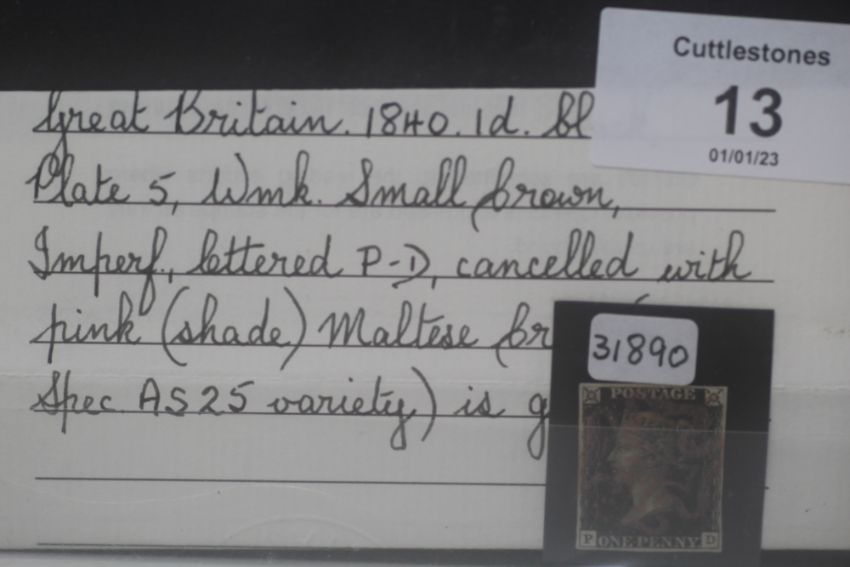 Cuttlestones
13
01/01/23
Great Britain. 1840. 1d. bl
Plate 5, Wmk. Small Crown,
Imperf, lettered P-D, cancelled with
pink (shade) Maltese Cr
Spec AS25 variety) is g
31890
POSTAGE
P ONE PENNY D